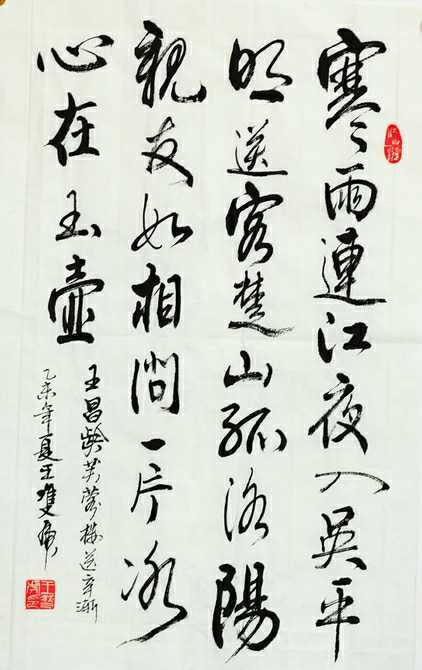 寒雨連江夜入吳平
明送客楚山孤洛陽
親友如相問一片冰
心在玉壺
王昌齡芙蓉樓送辛漸
乙未年夏王雙虎